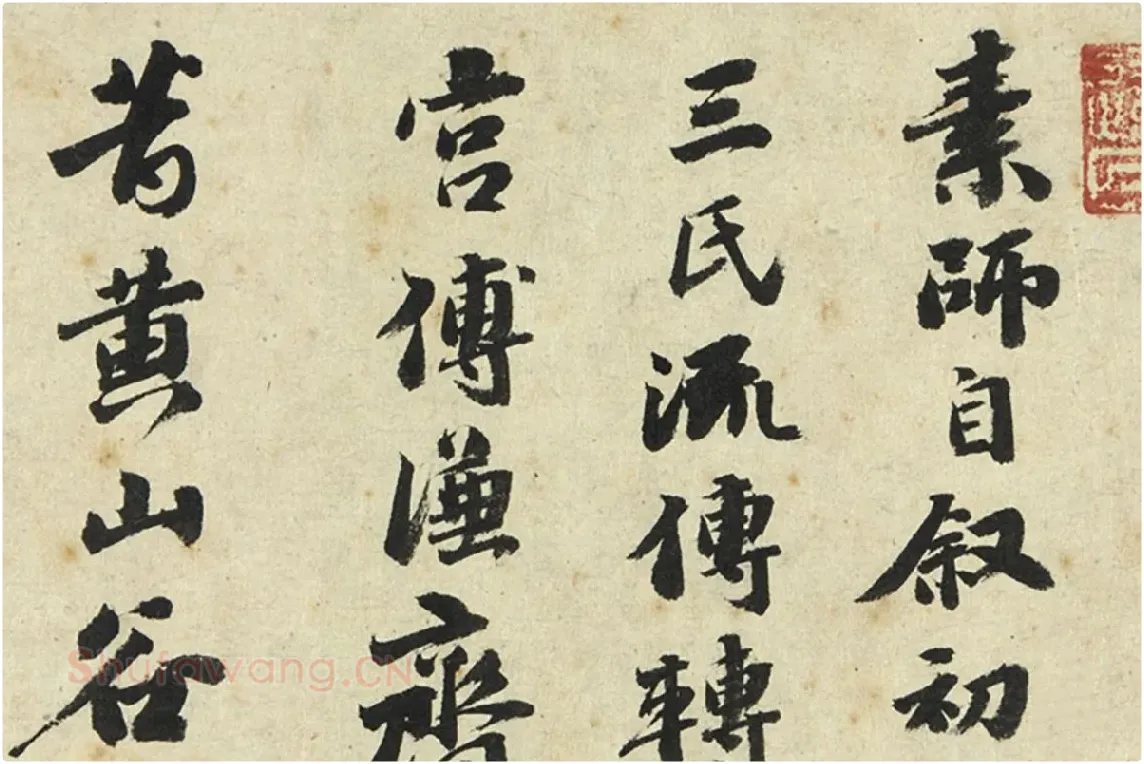 素師自叙初
三氏流傳轉
宫傅謙齋
昔黄山谷
Shufawang.CN